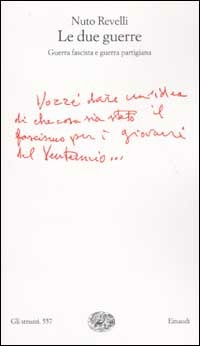 Nuto Revelli
Le due guerre
Guerra fascista e guerra partigiana
Vorrei dare un'idea
di che cosa sia stato il
fascismo per i giovani
del Ventennio...
Gli struzzi. 557
Einaudi